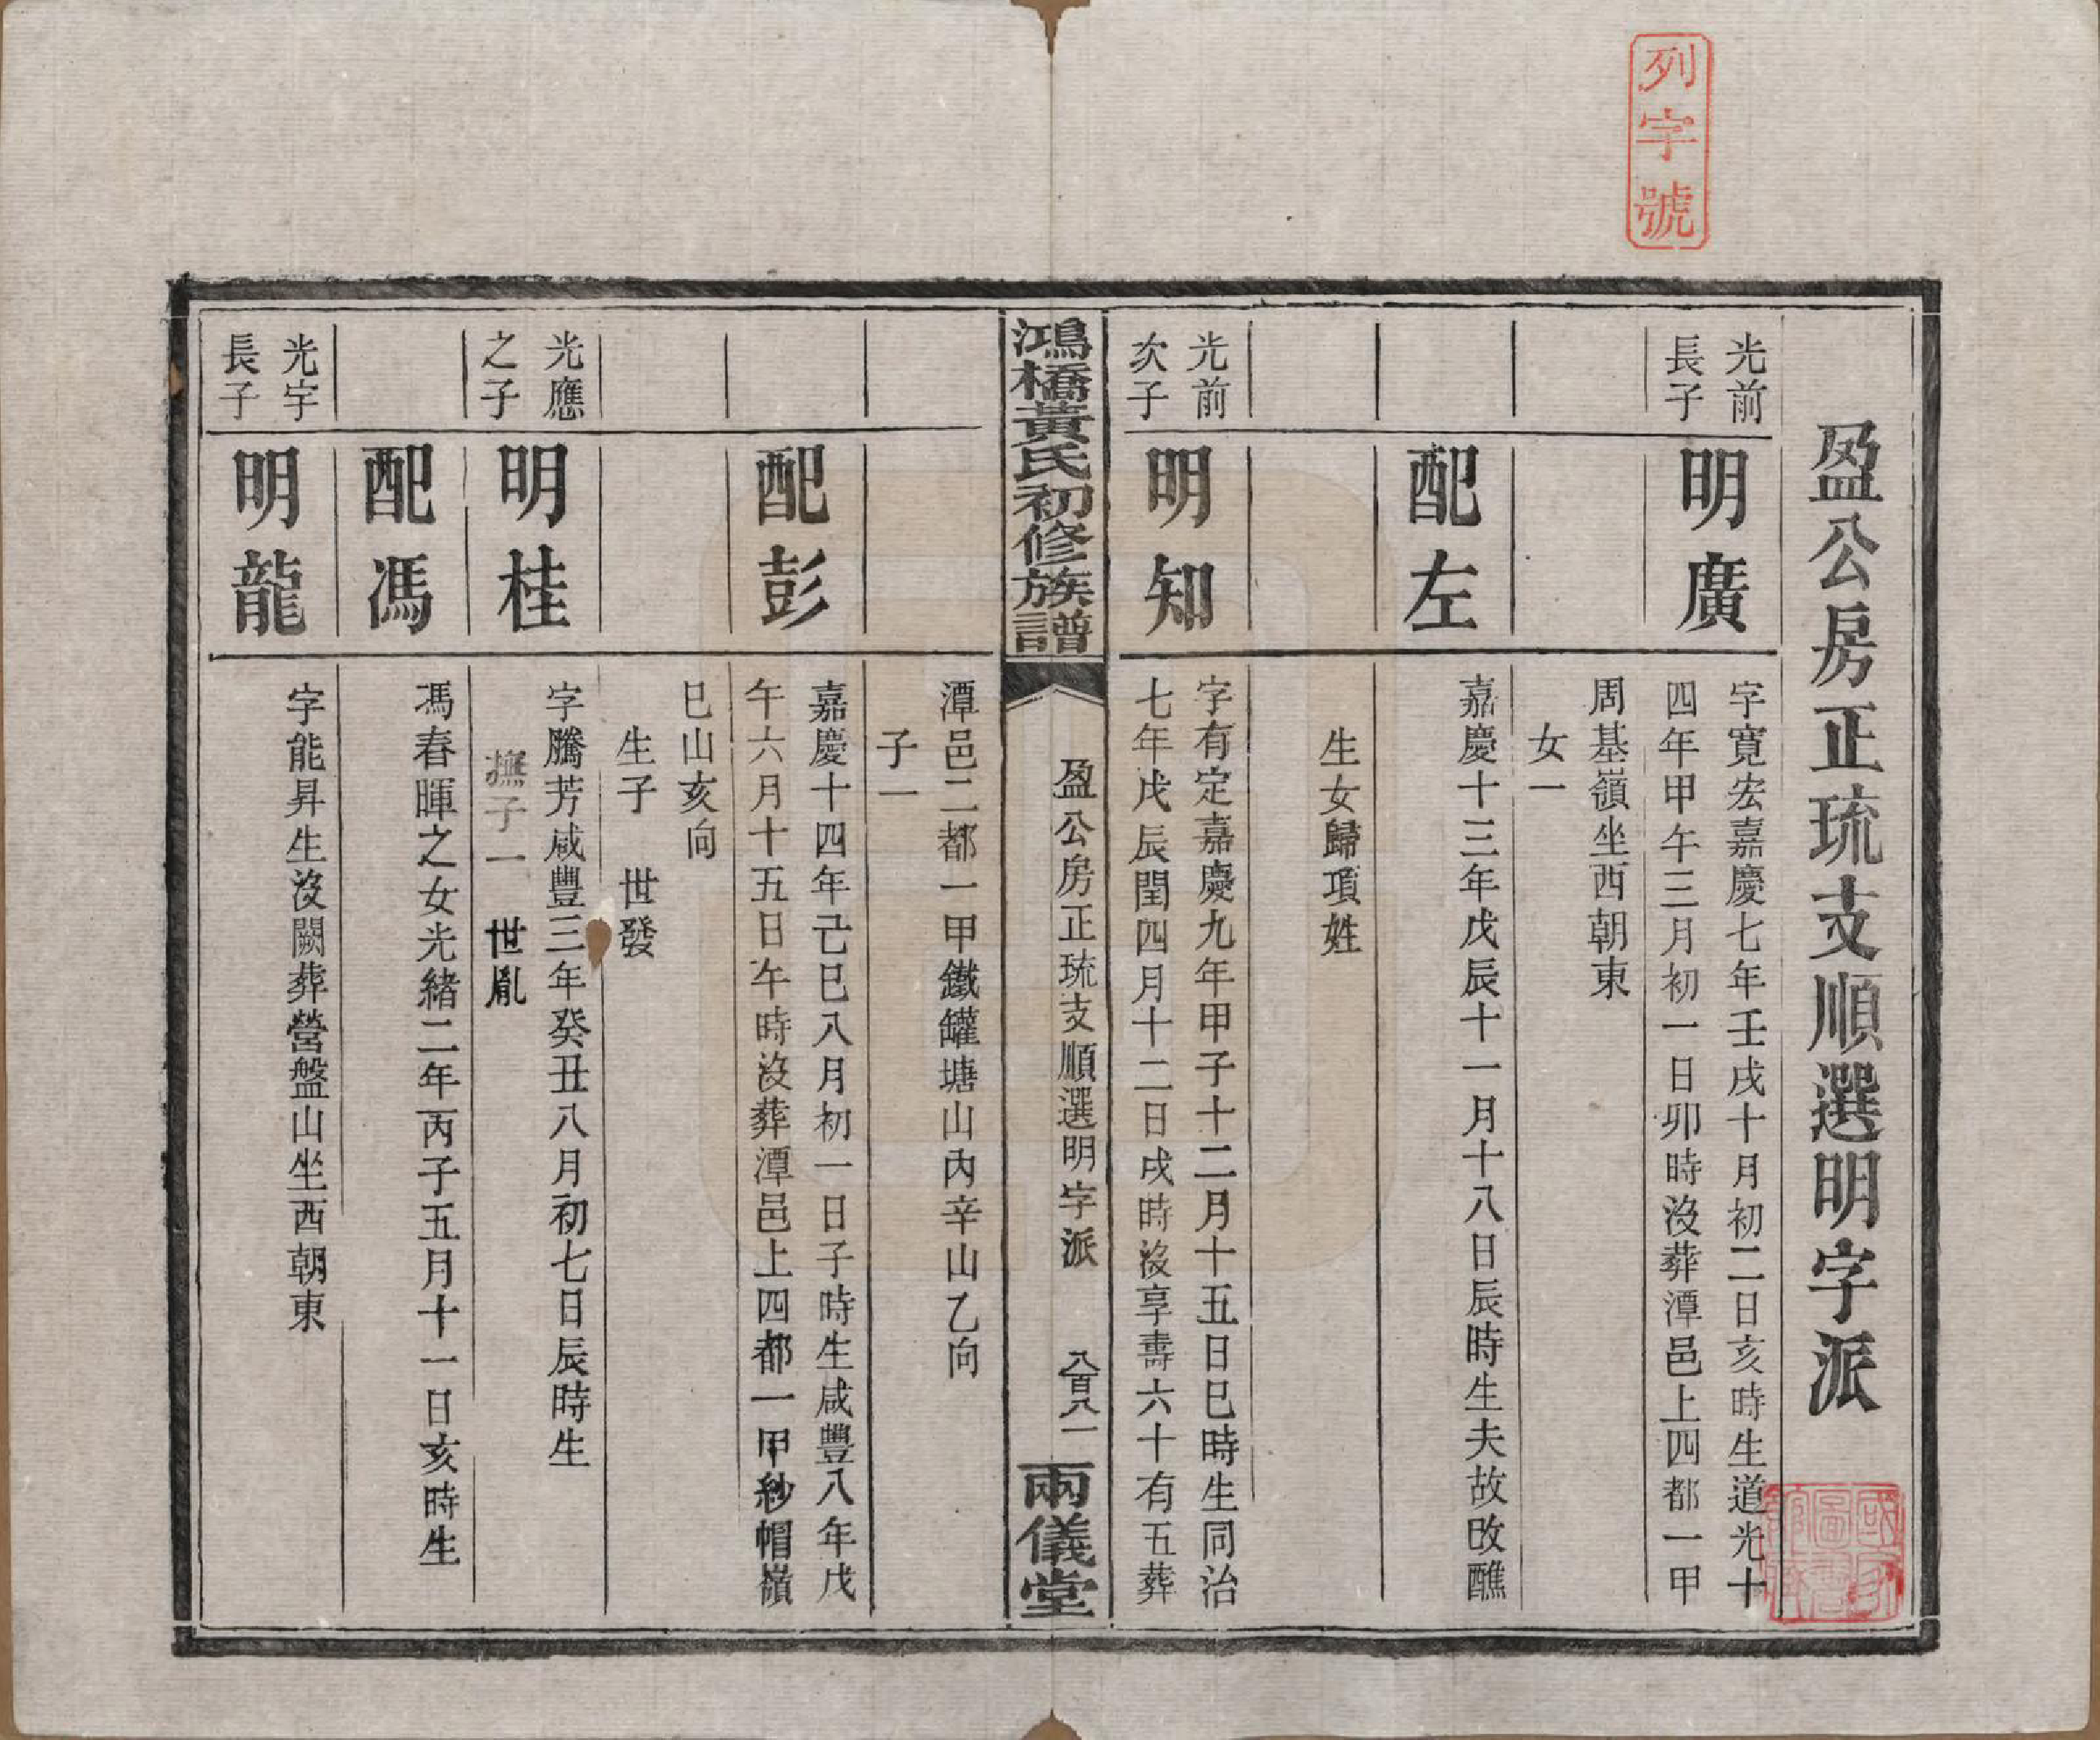 列字號
盈公房正琉支順選明字派
光前
長子
明廣
字寬宏嘉慶七年壬戌十月初二日亥時生道光十
四年甲午三月初一日卯時沒葬潭邑上四都一甲
周基嶺坐西朝東
女一
配左
嘉慶十三年戊辰十一月十八日辰時生夫故改醮
生女歸項姓
光前
次子
明知
字有定嘉慶九年甲子十二月十五日巳時生同治
七年戊辰閏四月十二日戌時沒享壽六十有五葬
鴻橋黃氏初修族譜
盈公房正琉支順選明字派
八百八一
兩儀堂
潭邑二都一甲鐵罐塘山內辛山乙向
子一
配彭
嘉慶十四年己巳八月初一日子時生咸豐八年戊
午六月十五日午時沒葬潭邑上四都一甲紗帽嶺
巳山亥向
生子 世發
光應
之子
明桂
字騰芳咸豐三年癸丑八月初七日辰時生
撫子一 世胤
配馮
馮春暉之女光緒二年丙子五月十一日亥時生
光宇
長子
明龍
字能昇生沒闕葬營盤山坐西朝東